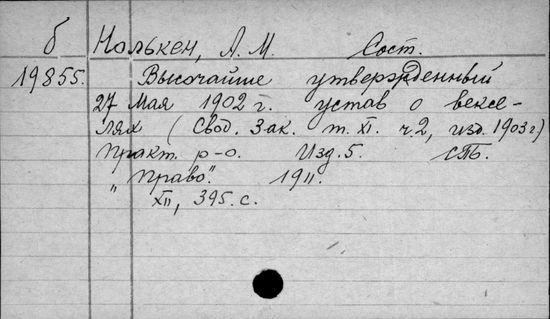 б Нолькен, А. М. Сост.
19855. Высочайше утвержденный
27 Мая 1902 г. устав о вексе-
лях (Свод. Зак. т. XI. ч.2, изд. 1903 г)
Практ. р-о. Изд. 5. СПб.
"Право". 1911.
XII, 395 с.